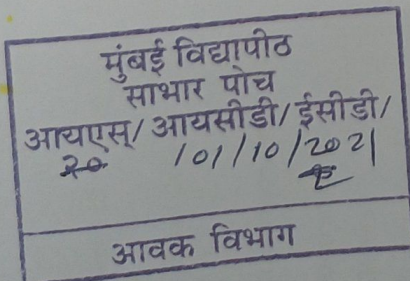 मुंबई विद्यापीठ
साभार पोच
आयएस/ आयसीडी/ ईसीडी/
20 /01/10/2021
आवक विभाग